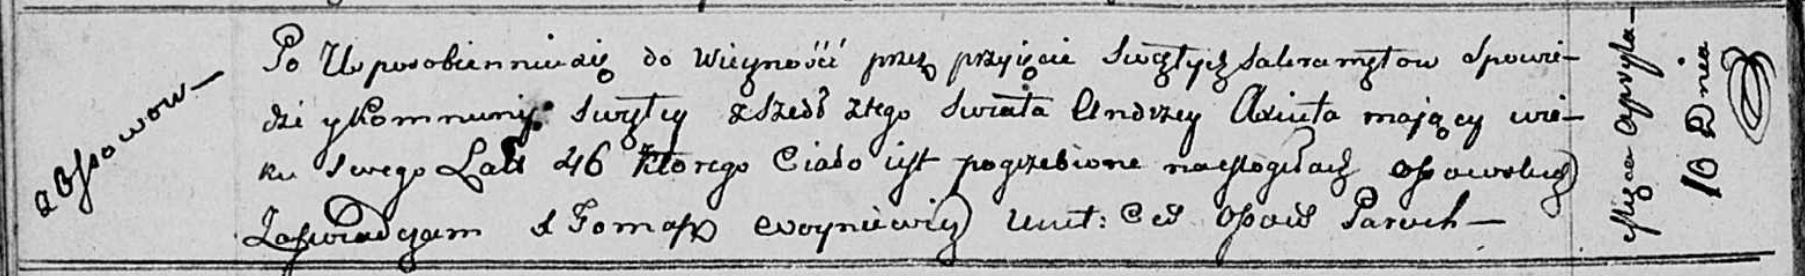 z Ossowow—
Po Usposobienniusię do Wieczności przez przyięcie Swętych Sakramętow Spowie-
dzi y Komnunij Swętey zszedł ztego Swiata Andrzey Axiuta mający wie-
ku swego Lat 46 ktorego Ciało iest pogrzebione na Mogiłach Ossowskich
Zaswiadczam X Tomasz Woyniewicz Unit: Cer Ossow Paroch—
Miesąca Apryla—
10 Dnia